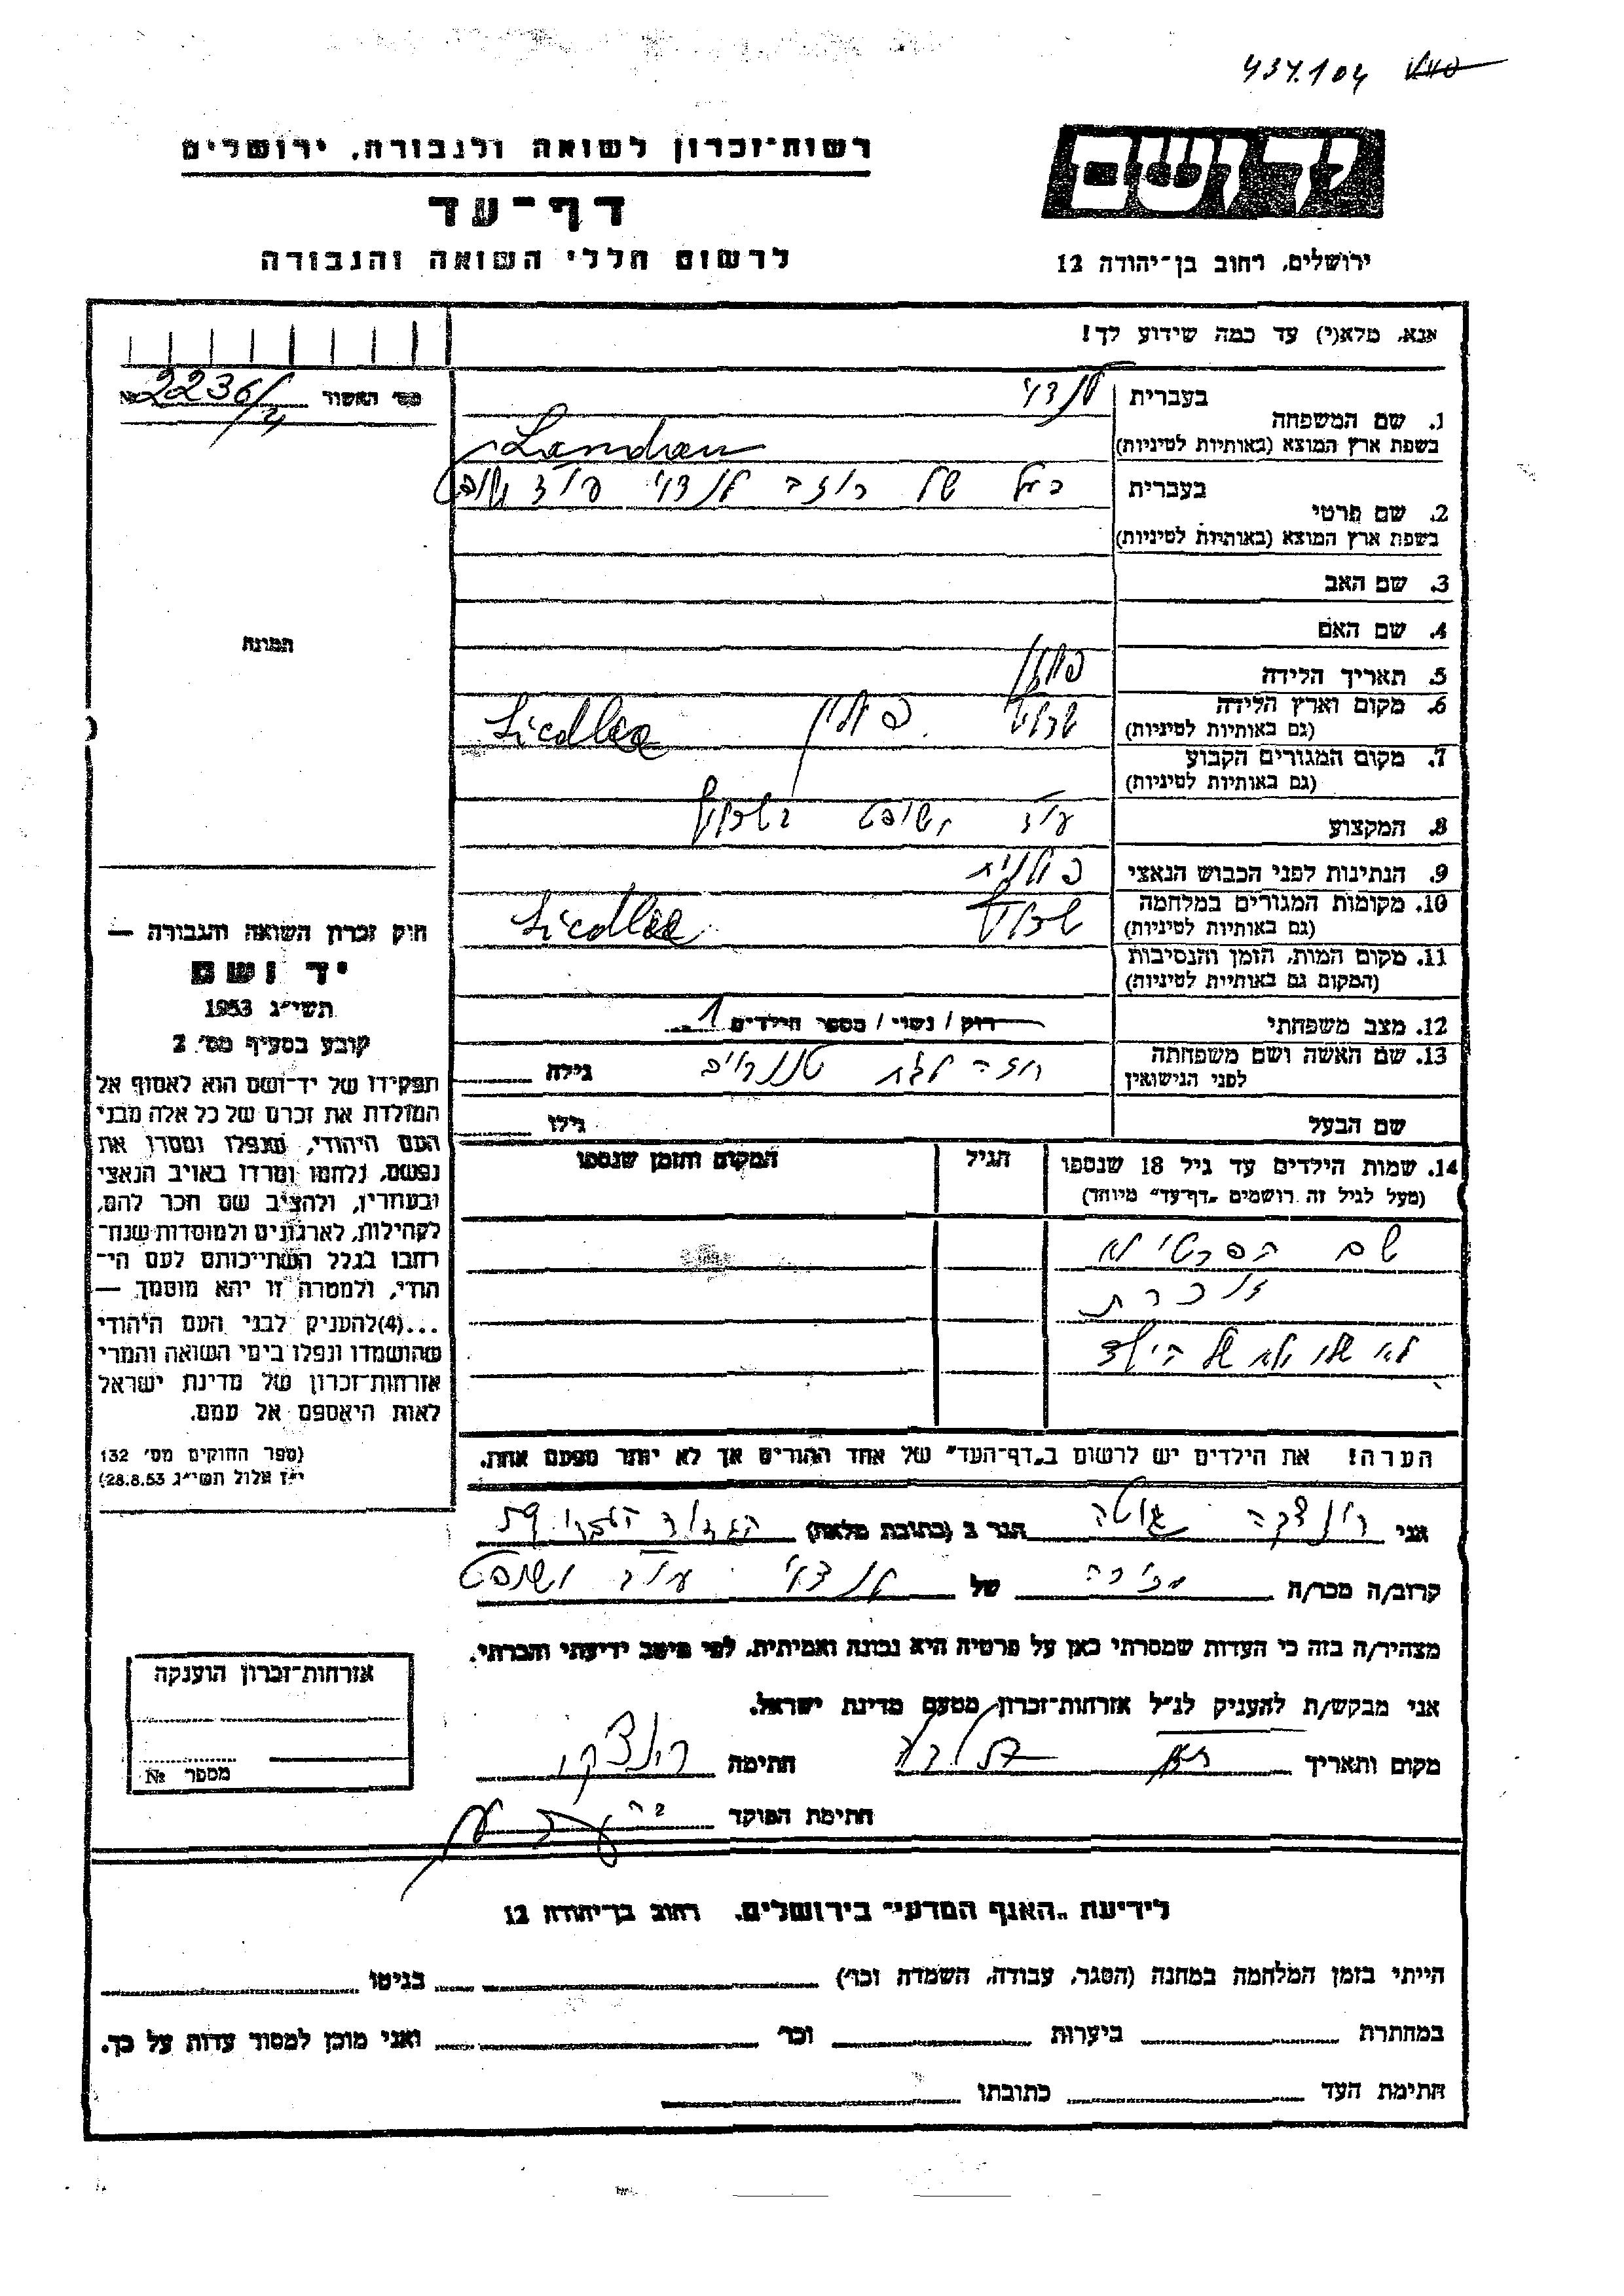 434.104
רשות־זכרון לשואה ולגבורה, ירושלים
יד ושם
דף־עד
לרשום חללי השואה והגבורה
ירושלים, רחוב בן־יהודה 12
אנא, מלא(י) עד כמה שידוע לך!
מס' האשור № 2236/
1. שם המשפחה
בעברית לנדוי
בשפת ארץ המוצא (באותיות לטיניות) Landau
2. שם פרטי
בעברית בעל של רוזה לנדוי עו"ד
בשפת ארץ המוצא (באותיות לטיניות)
3. שם האב
4. שם האם
תמונה
5. תאריך הלידה
6. מקום וארץ הלידה
(גם באותיות לטיניות) שדליץ פולין Siedlce
7. מקום המגורים הקבוע
(גם באותיות לטיניות)
8. המקצוע עו"ד ושופט בשדליץ
9. הנתינות לפני הכבוש הנאצי פולנית
10. מקומות המגורים במלחמה
(גם באותיות לטיניות) שדליץ Siedlce
11. מקום המות, הזמן והנסיבות
(המקום גם באותיות לטיניות)
12. מצב משפחתי רווק / נשוי / מספר הילדים 1
13. שם האשה ושם משפחתה
לפני הנישואין רוזה לבית גילה
שם הבעל גילו
14. שמות הילדים עד גיל 18 שנספו
(מעל לגיל זה רושמים „דף־עד" מיוחד)
הגיל
המקום והזמן שנספו
שם הפרטי לא
זוכרת
לא שלו ולא של הילד
הערה! את הילדים יש לרשום ב„דף־העד" של אחד ההורים אך לא יותר מפעם אחת.
חוק זכרון השואה והגבורה —
יד ושם
תשי"ג 1953
קובע בסעיף מס' 2
תפקידו של יד־ושם הוא לאסוף אל
המולדת את זכרם של כל אלה מבני
העם היהודי, שנפלו ומסרו את
נפשם, נלחמו ומרדו באויב הנאצי
ובעוזריו, ולהציב שם וזכר להם,
לקהילות, לארגונים ולמוסדות שנח־
רבו בגלל השתייכותם לעם הי־
הודי, ולמטרה זו יהא מוסמך —
...(4)להעניק לבני העם היהודי
שהושמדו ונפלו בימי השואה והמרי
אזרחות־זכרון של מדינת ישראל
לאות היאספם אל עמם.
(ספר החוקים מס' 132
י"ז אלול תשי"ג 28.8.53)
אני רודצקה גוטה הגר ב (כתובת מלאה)
קרוב/ה מכר/ה מכירה של לנדוי עו"ד ושופט
מצהיר/ה בזה כי העדות שמסרתי כאן על פרטיה היא נכונה ואמיתית, לפי מיטב ידיעתי והכרתי.
אני מבקש/ת להעניק לנ"ל אזרחות־זכרון מטעם מדינת ישראל.
מקום ותאריך חתימה
חתימת הפוקד
אזרחות־זכרון הוענקה
מספר №
לידיעת „האגף המדעי" בירושלים, רחוב בן־יהודה 12
הייתי בזמן המלחמה במחנה (הסגר, עבודה, השמדה וכו') בגיטו
במחתרת ביערות וכו' ואני מוכן למסור עדות על כך.
חתימת העד כתובתו